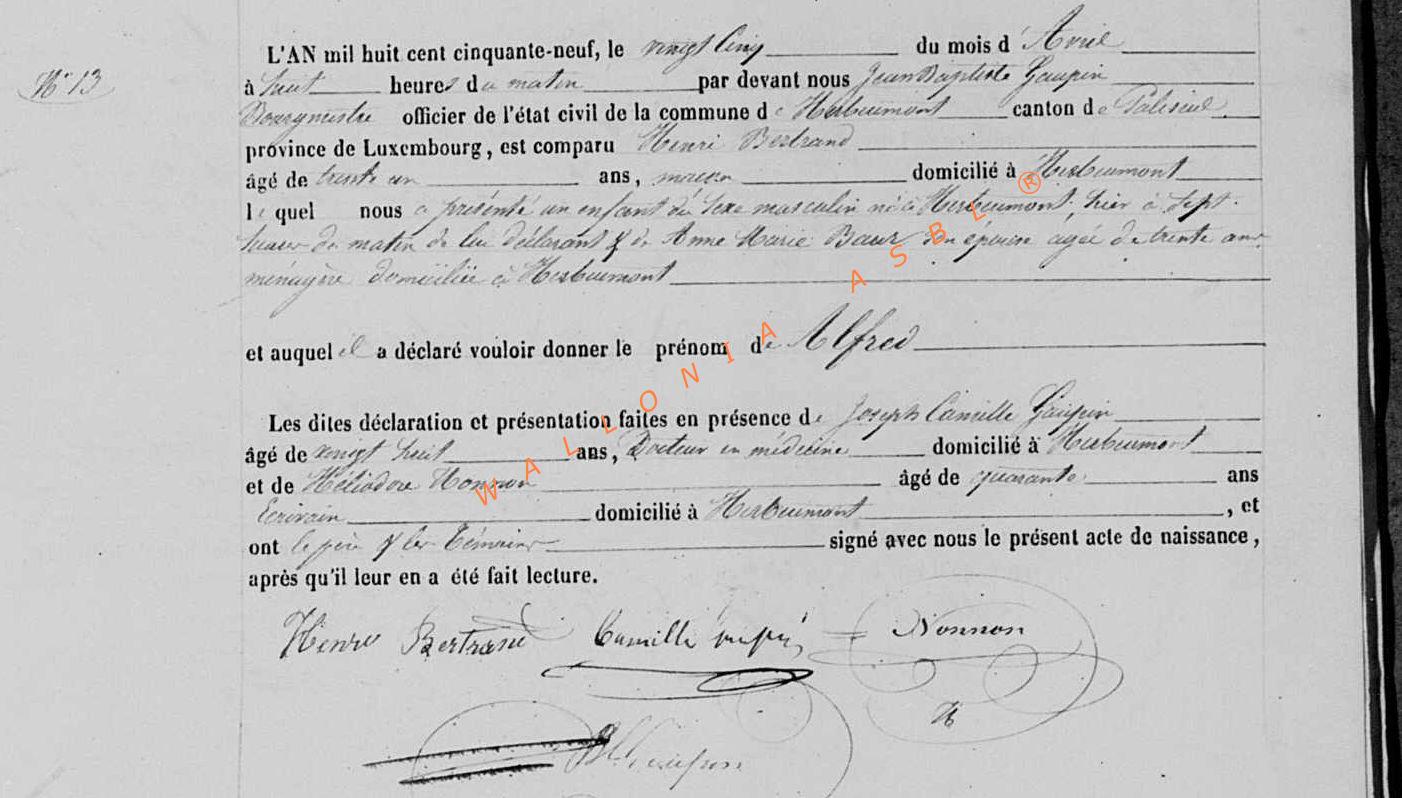 N° 13
L'AN mil huit cent cinquante-neuf, le vingt Cinq du mois d'Avril
à huit heures du matin par devant nous Jean Baptiste Gaupin
Bourgmestre officier de l'état civil de la commune de Herbeumont canton de Paliseul
province de Luxembourg, est comparu Henri Bertrand
âgé de trente un ans, maçon domicilié à Herbeumont
lequel nous a présenté un enfant du sexe masculin né à Herbeumont, hier à sept
heures du matin de lui déclarant & de Anne Marie Baur son épouse agée de trente ans
ménagère domiciliée à Herbeumont
et auquel il a déclaré vouloir donner le prénom de Alfred
Les dites déclaration et présentation faites en présence de Joseph Camille Gaupin
âgé de vingt huit ans, Docteur en médecine domicilié à Herbeumont
et de Héliodore Nonnon âgé de quarante ans
Ecrivain domicilié à Herbeumont, et
ont le père & les témoins signé avec nous le présent acte de naissance,
après qu'il leur en a été fait lecture.
Henri Bertrand Camille Nonnon
WALLONIA ASBL ®